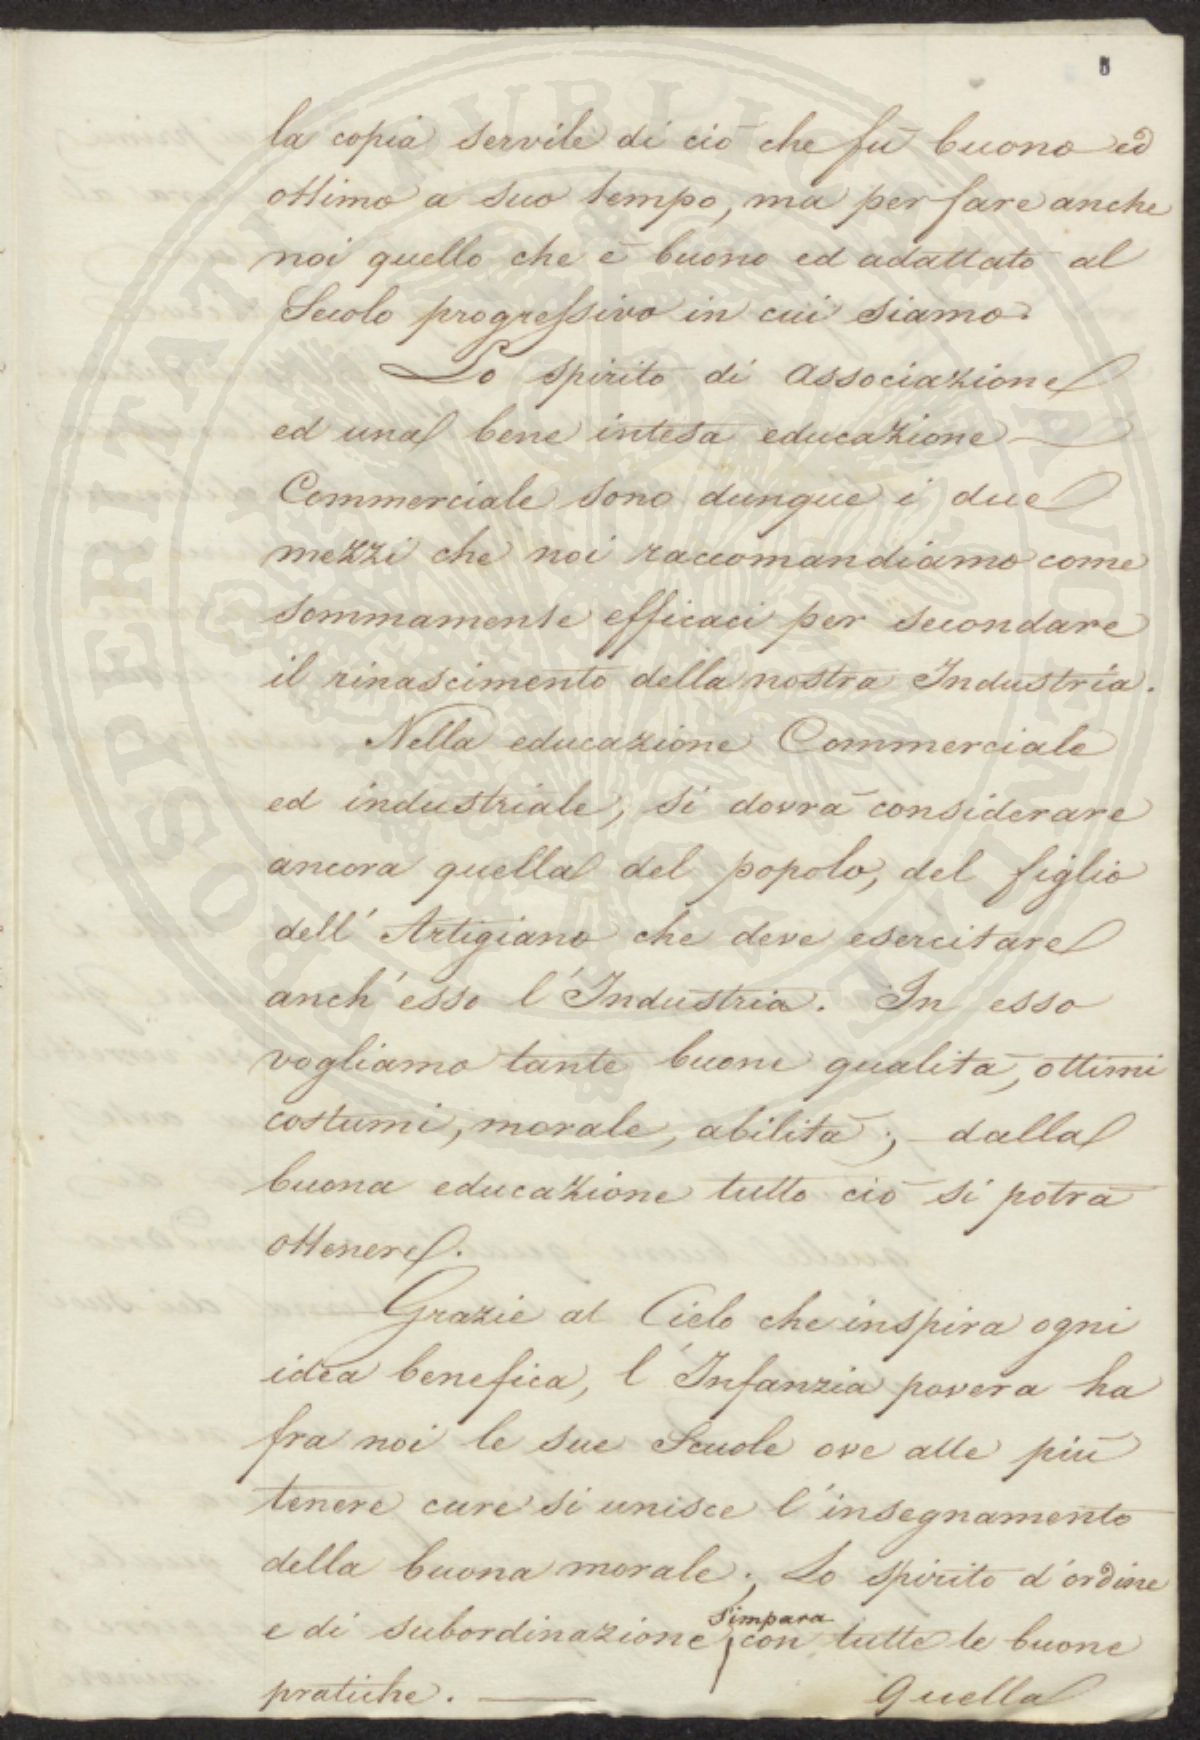 8
la copia servile di ciò che fù buono ed
ottimo a suo tempo, ma per fare anche
noi quello che è buono ed adattato al
Secolo progressivo in cui siamo.
Lo spirito di associazione
ed una bene intesa educazione
Commerciale sono dunque i due
mezzi che noi raccomandiamo come
sommamente efficaci per secondare
il rinascimento della nostra Industria.
Nella educazione Commerciale
ed industriale, si dovrà considerare
ancora quella del popolo, del figlio
dell'Artigiano che deve esercitare
anch'esso l'Industria. In esso
vogliamo tante buone qualità, ottimi
costumi, morale, abilità; dalla
buona educazione tutto ciò si potrà
ottenere.
Grazie al Cielo che inspira ogni
idea benefica, l'Infanzia povera ha
fra noi le sue Scuole ove alle più
tenere cure si unisce l'insegnamento
della buona morale; Lo spirito d'ordine
e di subordinazione s'impara con tutte le buone
pratiche. —
Quella
PROSPERITATI PUBLICAE AUGENDAE